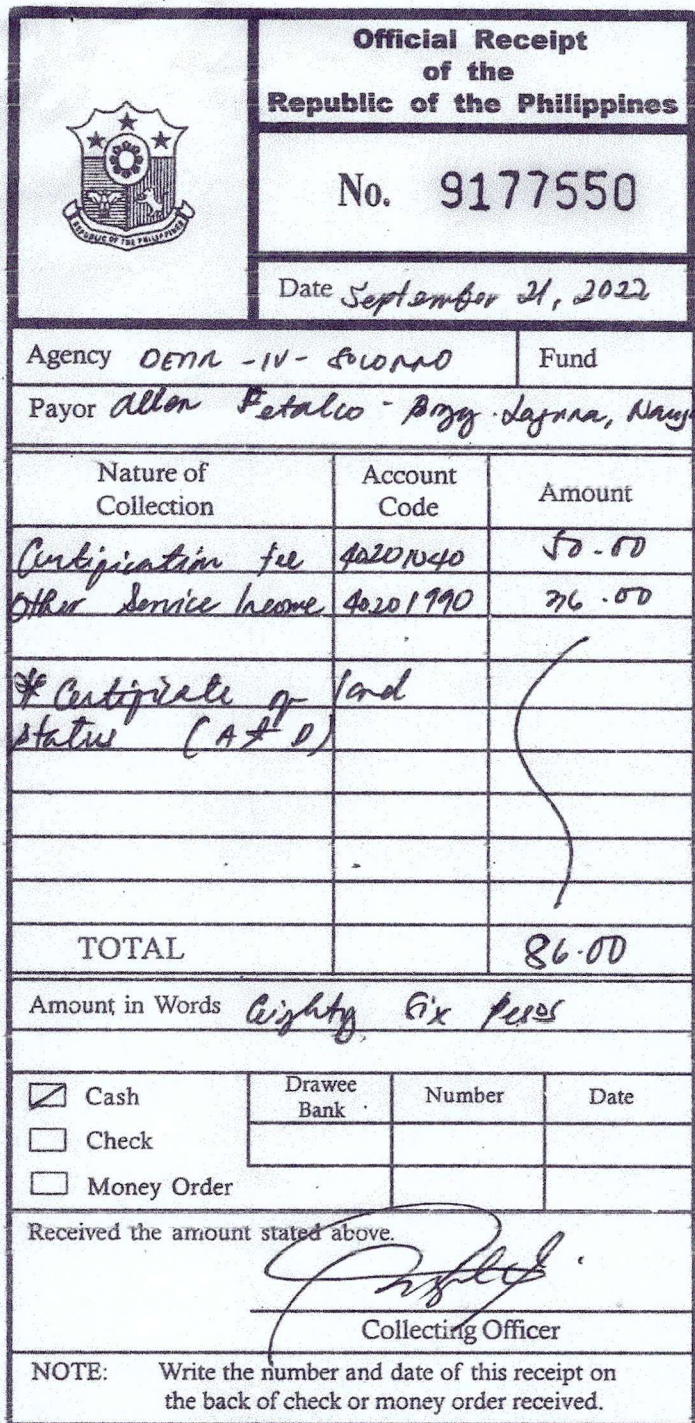 Official Receipt
of the
Republic of the Philippines
REPUBLIC OF THE PHILIPPINES
No. 9177550
Date September 21, 2022
Agency DENR - IV - SOCORRO Fund
Payor Allen - Brgy. Laguna, Nauj
Nature of Collection Account Code Amount
Certification fee 40201040 50.00
Other Service Income 40201990 36.00
* Certificate of land
status (A & D)
TOTAL 86.00
Amount in Words Eighty Six Pesos
Cash Drawee Bank Number Date
Check
Money Order
Received the amount stated above.
Collecting Officer
NOTE: Write the number and date of this receipt on
the back of check or money order received.